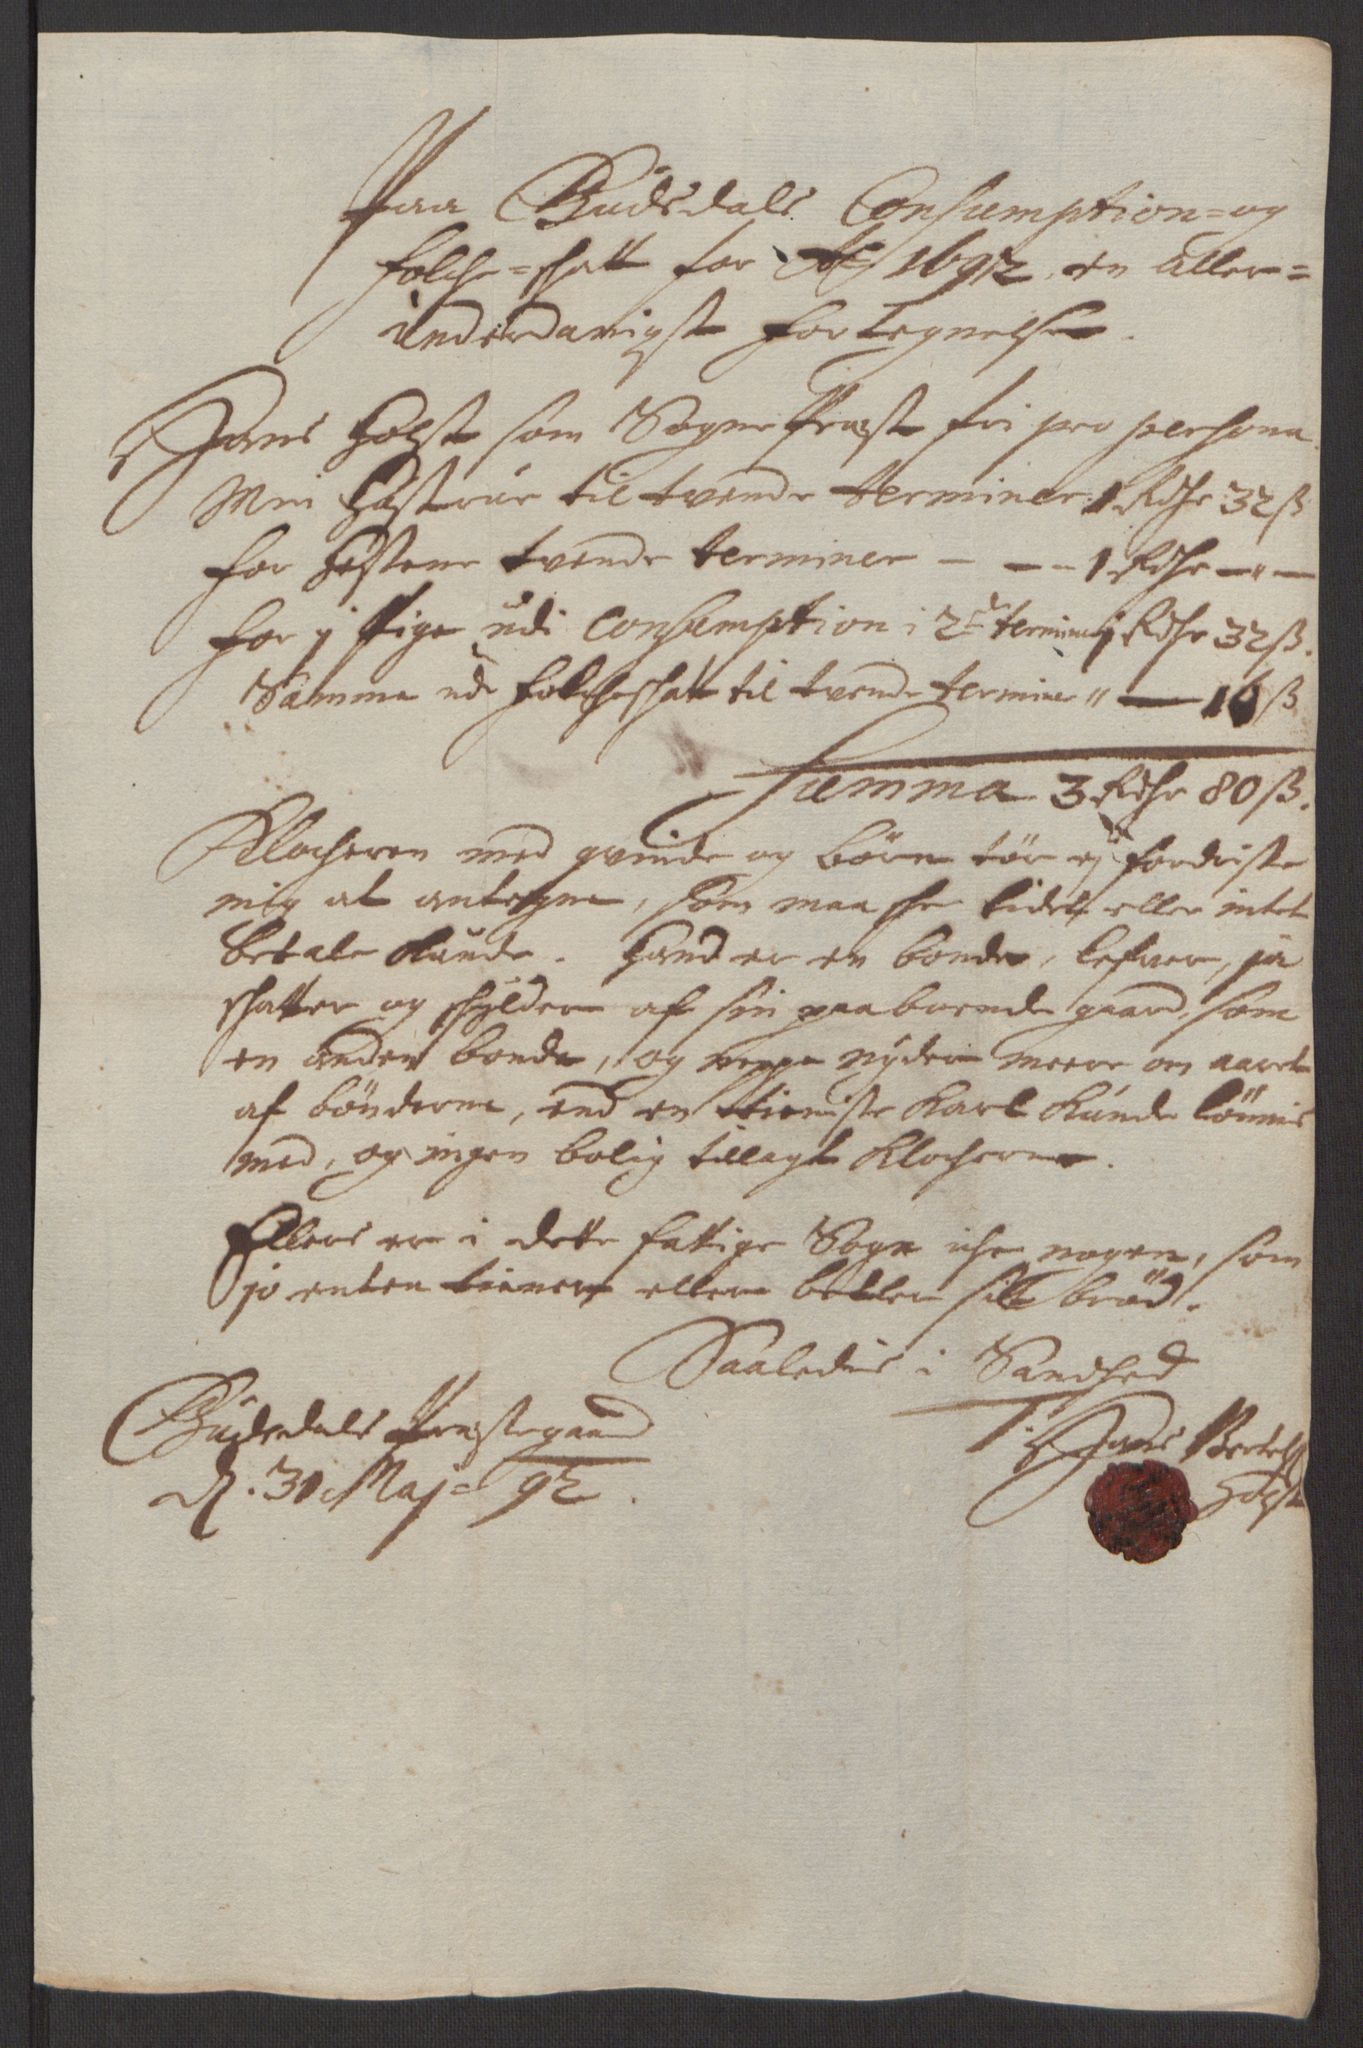 Paa Budsdals Consumption= og
folche=skatt for Ao 1692, en aller=
underdanigst fortegnelse.
Hans Holst som Sogne Prest fri pro persona.
Min Hustrue til tvende terminer 1 Rdhr 32 ß
for Hestene tvende terminer — — - 1 Rdhr — " —
for j Pige udi Consumption i 2de termin j Rdhr 32 ß.
Samme udi folcheschatt til tvende termine " — 16 ß
Summa 3 Rdhr 80 ß.
Klocheren med qvinde og börn tör ej fordriste
mig at antegne, som maa ske lidet eller intet
betale kunde. Hand er en bonde, lefver, ja
skatter og skylder af sin paaboende gaard, som
en anden bonde, og neppe nyder meere om aaret
af bönderne, end en tieniste karl kunde lönnis
med, og ingen bolig tillagt Klocherne.
Ellers er i dette fattige Sogn iche nogen, som
jo enten tiener eller betler sitt bröd.
Saaledis i Sandhed
Budsdals Prestegaard
d. 31 Maji 92.
T. Hans Bertels
Holst